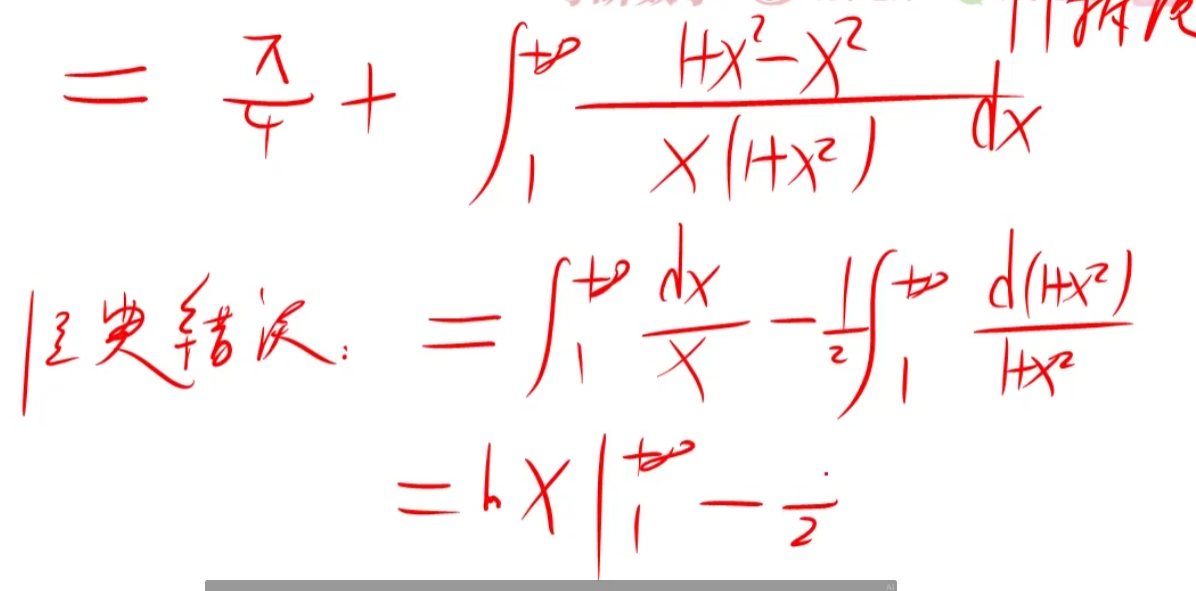 = π/4 + ∫₁^{+∞} (1+x²-x²)/(x(1+x²)) dx
经典错误: = ∫₁^{+∞} dx/x - 1/2 ∫₁^{+∞} d(1+x²)/(1+x²)
= ln x |₁^{+∞} - 1/2